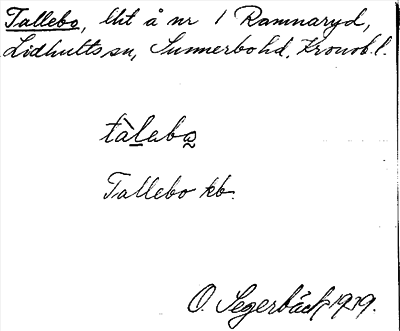 Tallebo, lht å nr 1 Ramnaryd,
Lidhults sn, Sunnerbo hd, Kronob. l.
tàlebo
Tallebo kb.
O. Segerbäck 1919.